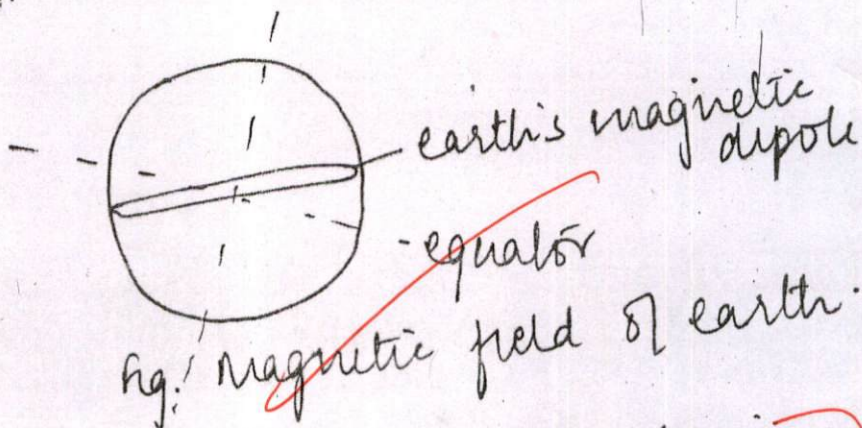 earth's magnetic
dipole
equator
Fig: Magnetic field of earth.